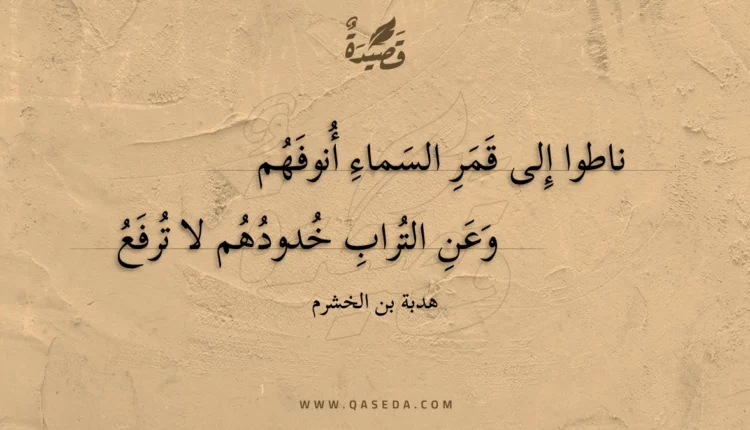 قَصِيدَةٌ
ناطوا إِلى قَمَرِ السَماءِ أُنوفَهُم
وَعَنِ التُرابِ خُدودُهُم لا تُرفَعُ
هدبة بن الخشرم
WWW.QASEDA.COM